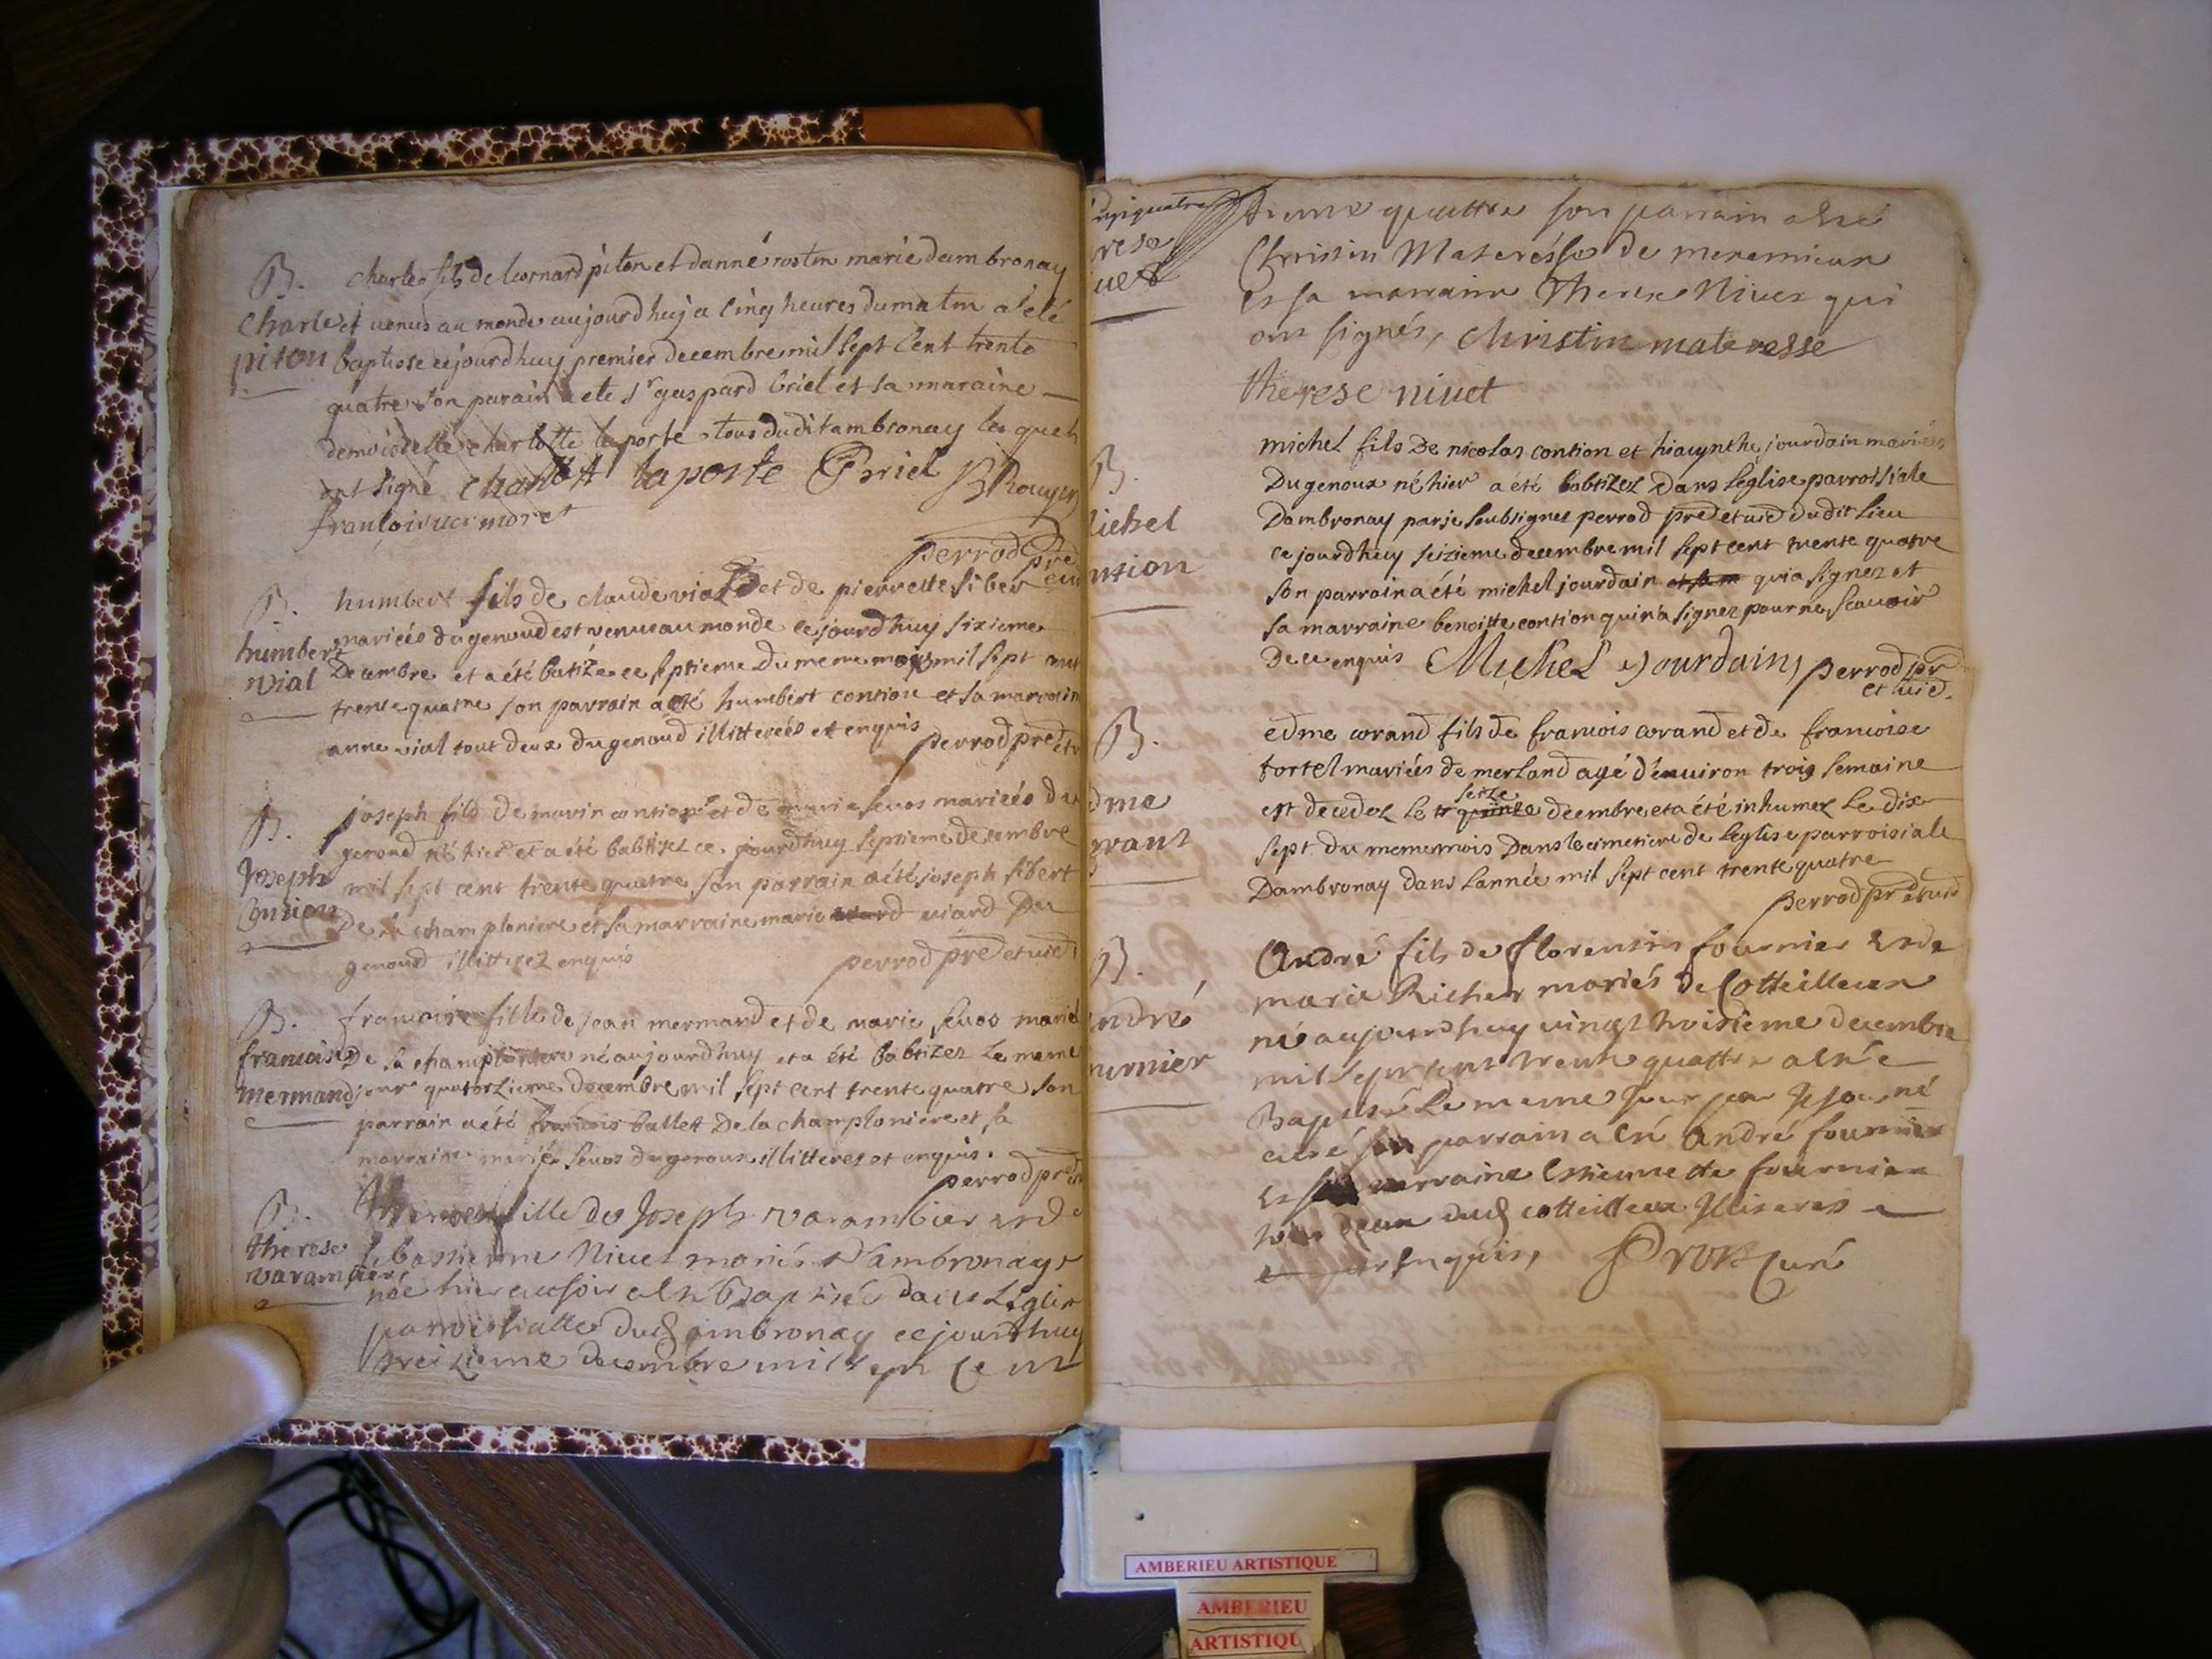 B.
charle
piton
charles fils de leornard piton et danné rostin marié dambronay
et venus au monde aujourdhuj a cinq heures du matin a été
baptise cejourdhuy premier decembre mil sept cent trente
quatre son parain a ete sr gaspard briel et sa maraine
demoiselle charlotte laporte tous dudit ambronay les quels
ont signé charlott laporte Briel Rouyer
francois uermoret
perrod pre
B.
humbert
vial
humbert fils de claude vial et de pierrette siber
mariées du genoud est venue au monde ce jourdhuy sixieme
Decembre et a été batizé ce septieme du meme mois mil sept cent
trente quatre son parrain a été humbert contion et sa marraine
anne vial tout deux du genoud illitterées et enquis perrod pre et v
B.
Joseph
Contion
joseph fils de marin contion et de marie seuos mariéés du
genoud né hier et a été babtisez ce jourdhuy septieme decembre
mil sept cent trente quatre son parrain a été joseph sibert
De la champloniere et sa marraine marie viard Du
genoud illitterez enquis perrod pre et uic
B.
francoise
mermand
francoise fille de jean mermand et de marie seuos mariés
De la champloniere né aujourdhuy et a été babtizez le meme
jour quatorzieme decembre mil sept cent trente quatre son
parrain a été francois ballet De la champloniere et sa
marraine marie seuos du genoux illitterez et enquis.
perrod pre
B.
therese
varambier
Therese fille de Joseph varambier et de
sebastienne Nivet mariés d'ambronay
née hier au soir a été Baptisée dans L'église
parroissialle dud ambronay ce jourdhuy
treizieme decembre mil sept cent
trente quattre son parrain a été
Christin Materesse de meximieux
et sa marraine Therese Nivet qui
ont signés, christin materesse
therese nivet
B.
ichel
ntion
michel fils De nicolas contion et hiacynthe jourdain mariées
Du genoux né hier a été babtizez Dans l'église parroissiale
Dambronay par je soubsignez perrod pre et uic dudit Lieu
ce jourdhuy seizieme decembre mil sept cent trente quatre
son parrain a été michel jourdain qui a signez et
sa marraine benoitte contion qui n'a signez pour ne scauoir
De ce enquis Michel Jourdain perrod pr
et uic.
B.
dme
orant
edme corand fils de francois corand et de francoise
tortel mariées de merland agé d'environ trois semaine
est decedez le seize decembre et a été inhumez le dix
sept du meme mois Dans le cimetiere de leglise parroissiale
Dambronay dans lannée mil sept cent trente quatre
perrod pr et uic
B.
ndré
urnier
André fils de florentin fournier et de
marie Richer mariés de Cotteilleux
né aujourdhuy vingt troisieme decembre
mil sept cent trente quattre a été
Baptisé le meme jour par je soussigné
curé son parrain a été André fournier
et sa marraine Estiennette fournier
tous deux dud cotteilleux Illiteres
et enquis, Curé
AMBERIEU ARTISTIQUE
AMBERIEU
ARTISTIQU